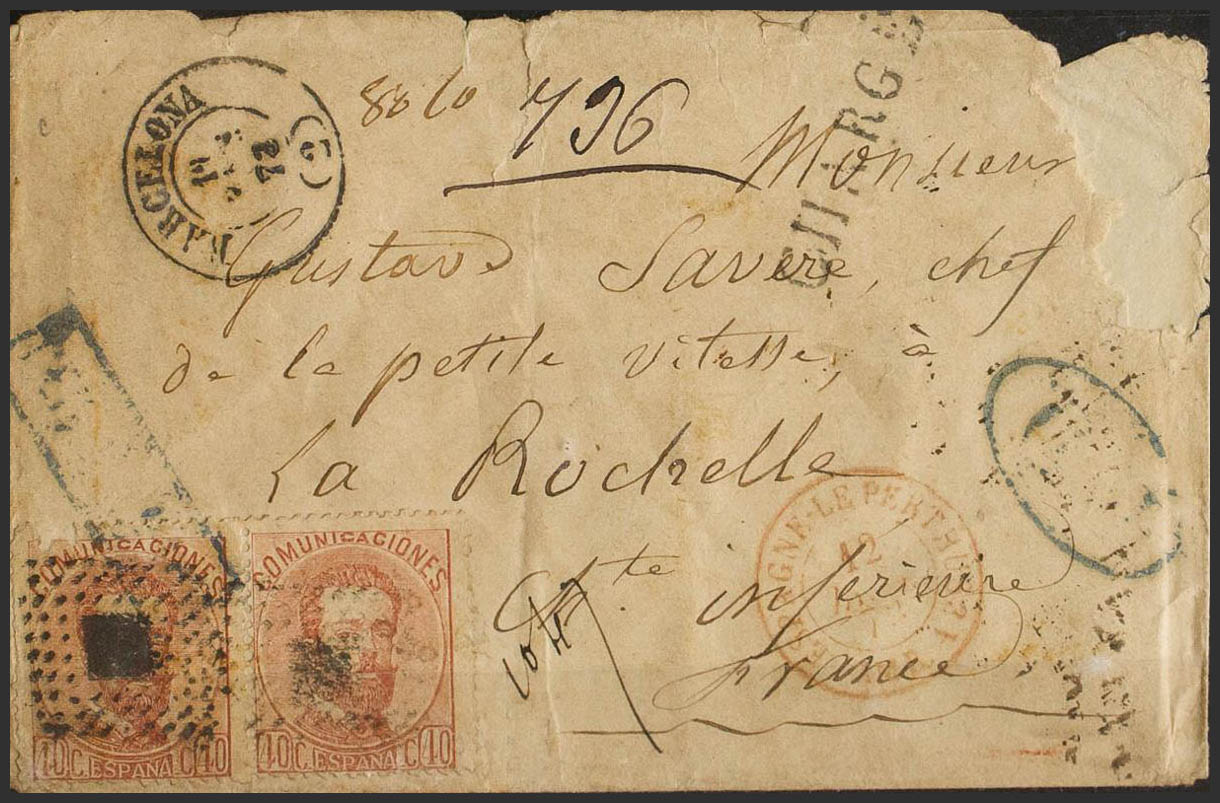 796
CHARGE
BARCELONA
(5)
Monsieur
Gustave Savère, chef
de la petite vitesse, à
La Rochelle
inférieure
France
ESPAGNE-LE PERTHUS
12
COMUNICACIONES
40 C. ESPANA C 40
COMUNICACIONES
40 C. ESPANA C 40